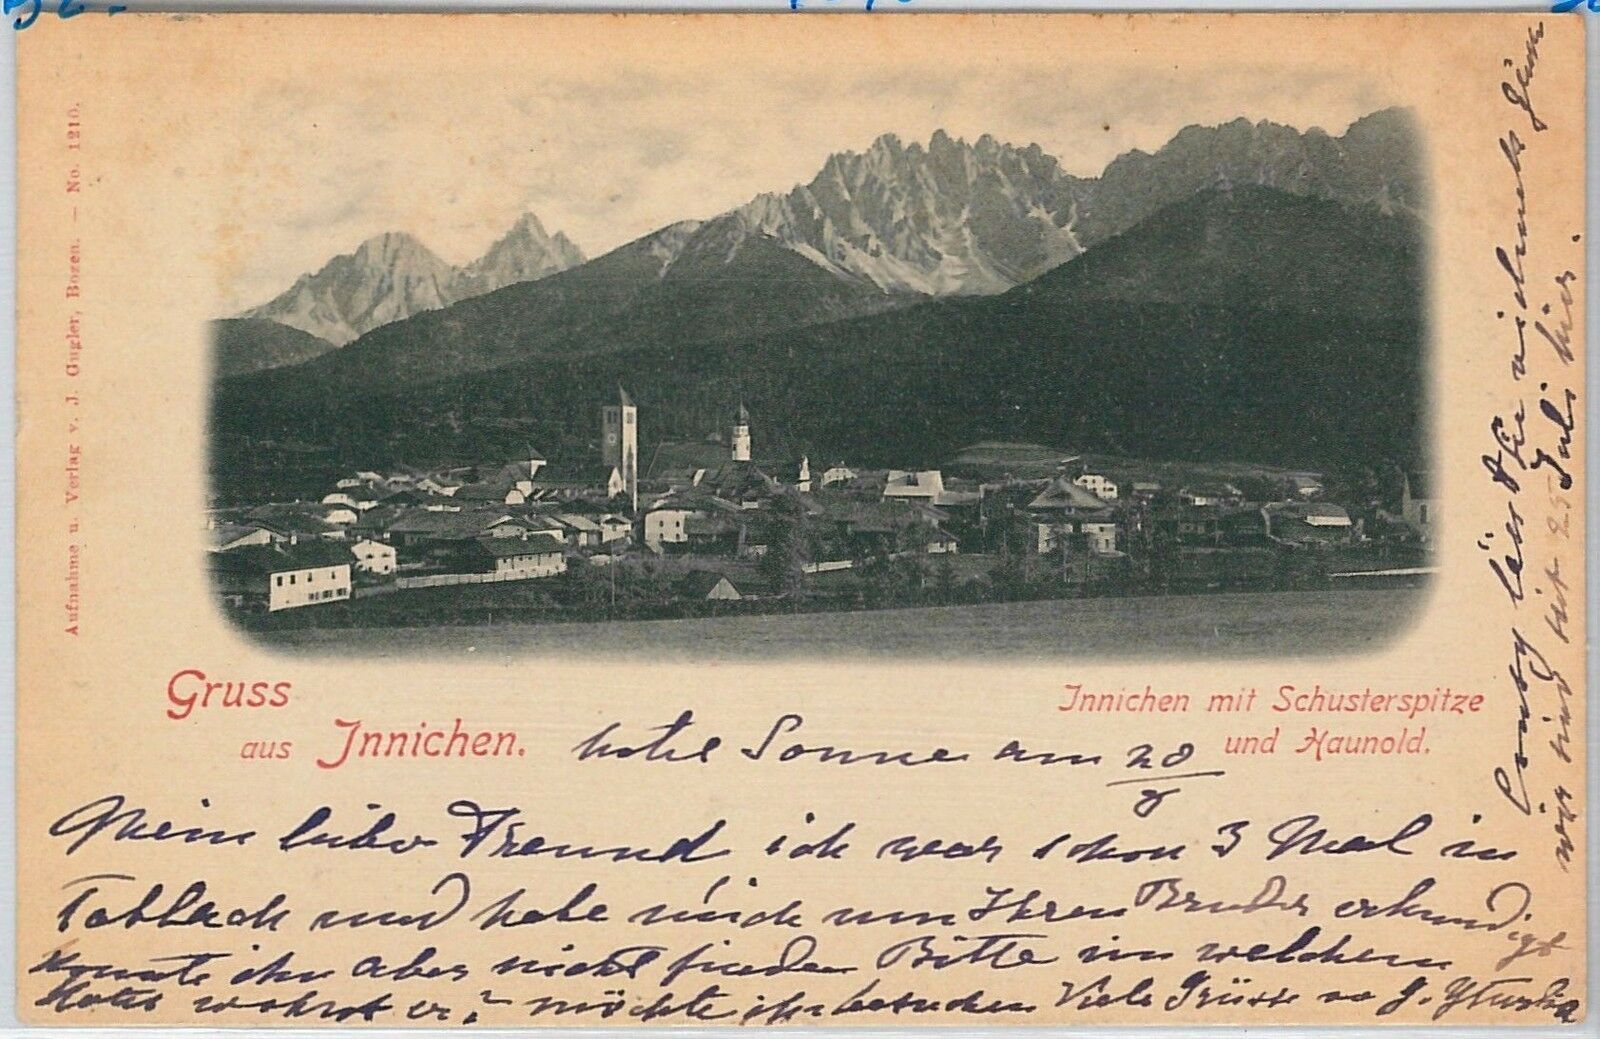 Aufnahme u. Verlag v. J. Gugler, Bozen. — No. 1210.
Gruss
aus Innichen.
Innichen mit Schusterspitze
und Haunold.
hotel Sonne am 28/8
Mein lieber Freund ich war schon 3 Mal in
Toblach und habe mich um Ihren Bruder erkundigt
konnte ihn aber nicht finden Bitte in welchem
Hotel wohnt er? möchte ihn besuchen Viele Grüsse v.
lässt Sie vielmals
wir sind seit 25 Juli hier.